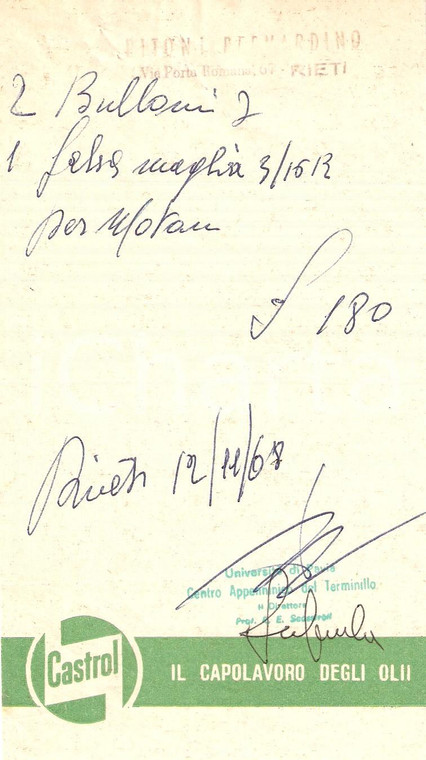 BERNARDINO
Via Porta Romana, 67 - RIETI
2 Bulloni 7
1 falsa maglia 3/16 R
per Motom
£ 180
Rieti 12/11/68
Università di Pavia
Centro Appenninico del Terminillo
Il Direttore
Prof.
Castrol
IL CAPOLAVORO DEGLI OLII
iCharta